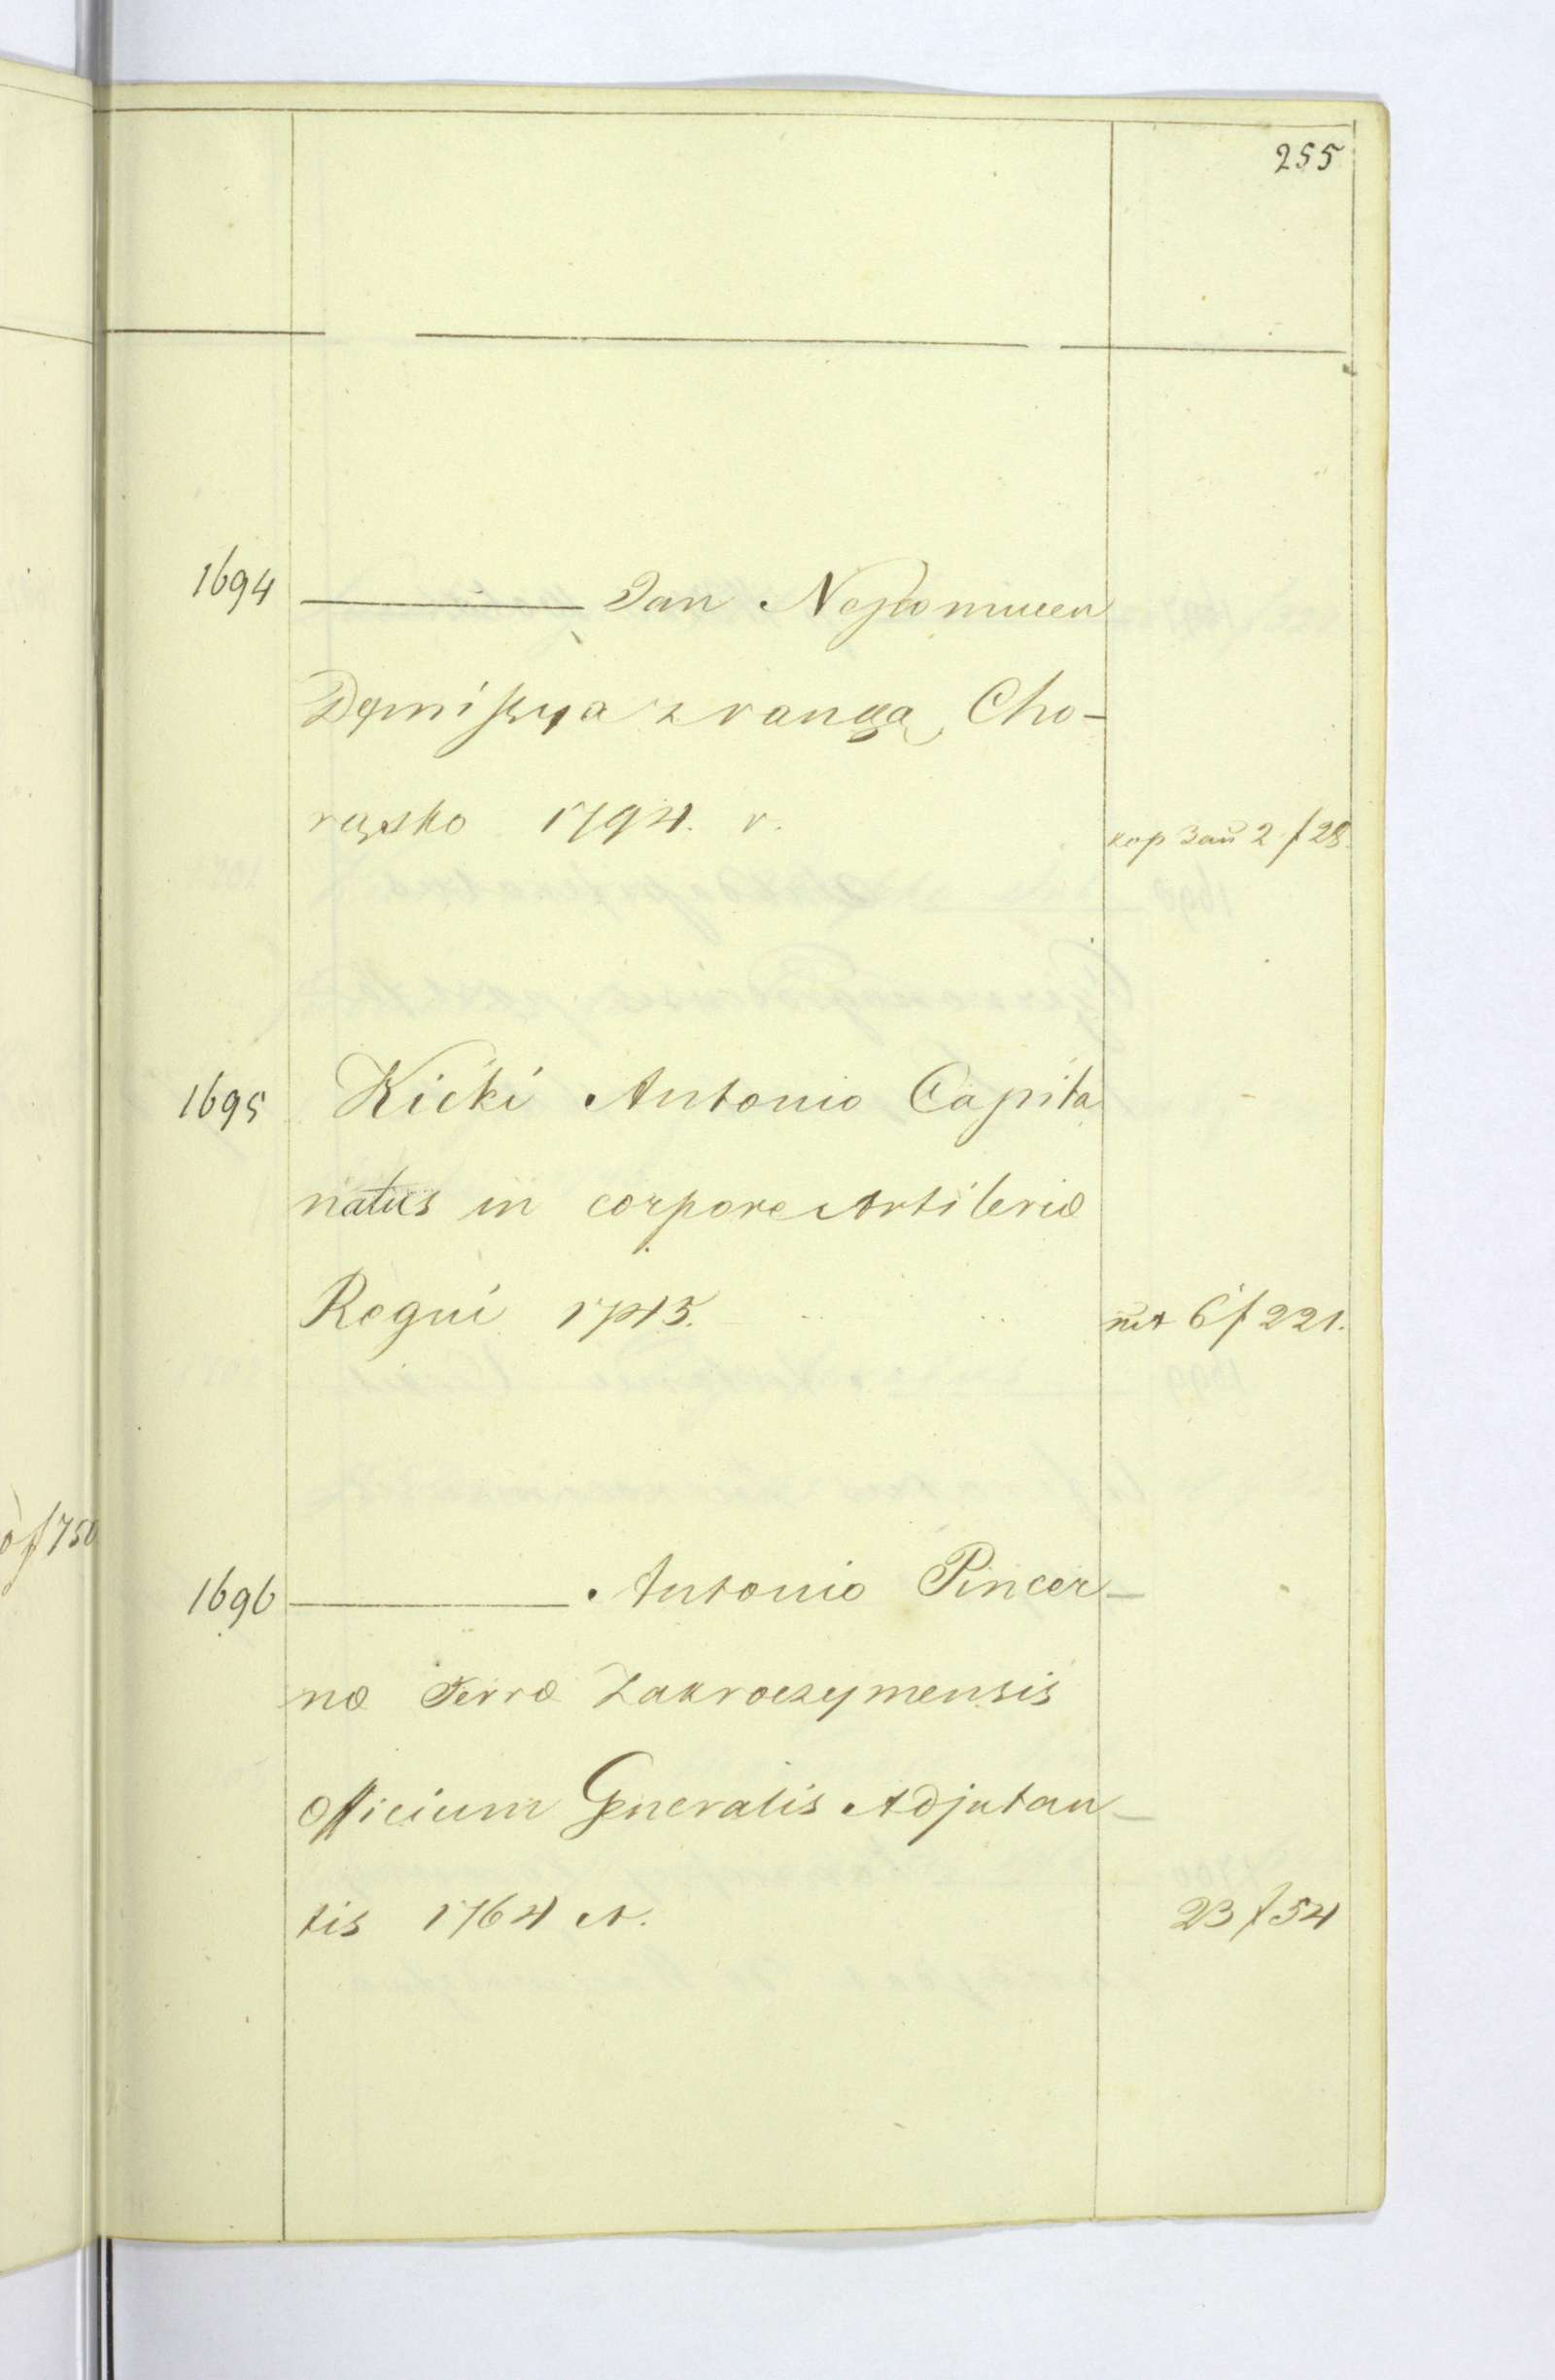 255
1694 ——— Jan Nepomucen
Dymissya z rangą Cho-
rążsko 1794. r. кор Зап 2 f 28.
1695 Kicki Antonio Capita
natus in corpore Artileriæ
Regni 1745. 6 f 221.
f 750
1696 ——— Antonio Pincer-
næ Terræ Zakroczymensis
officium Generalis Adjutan-
tis 1764 A. 23 f 54